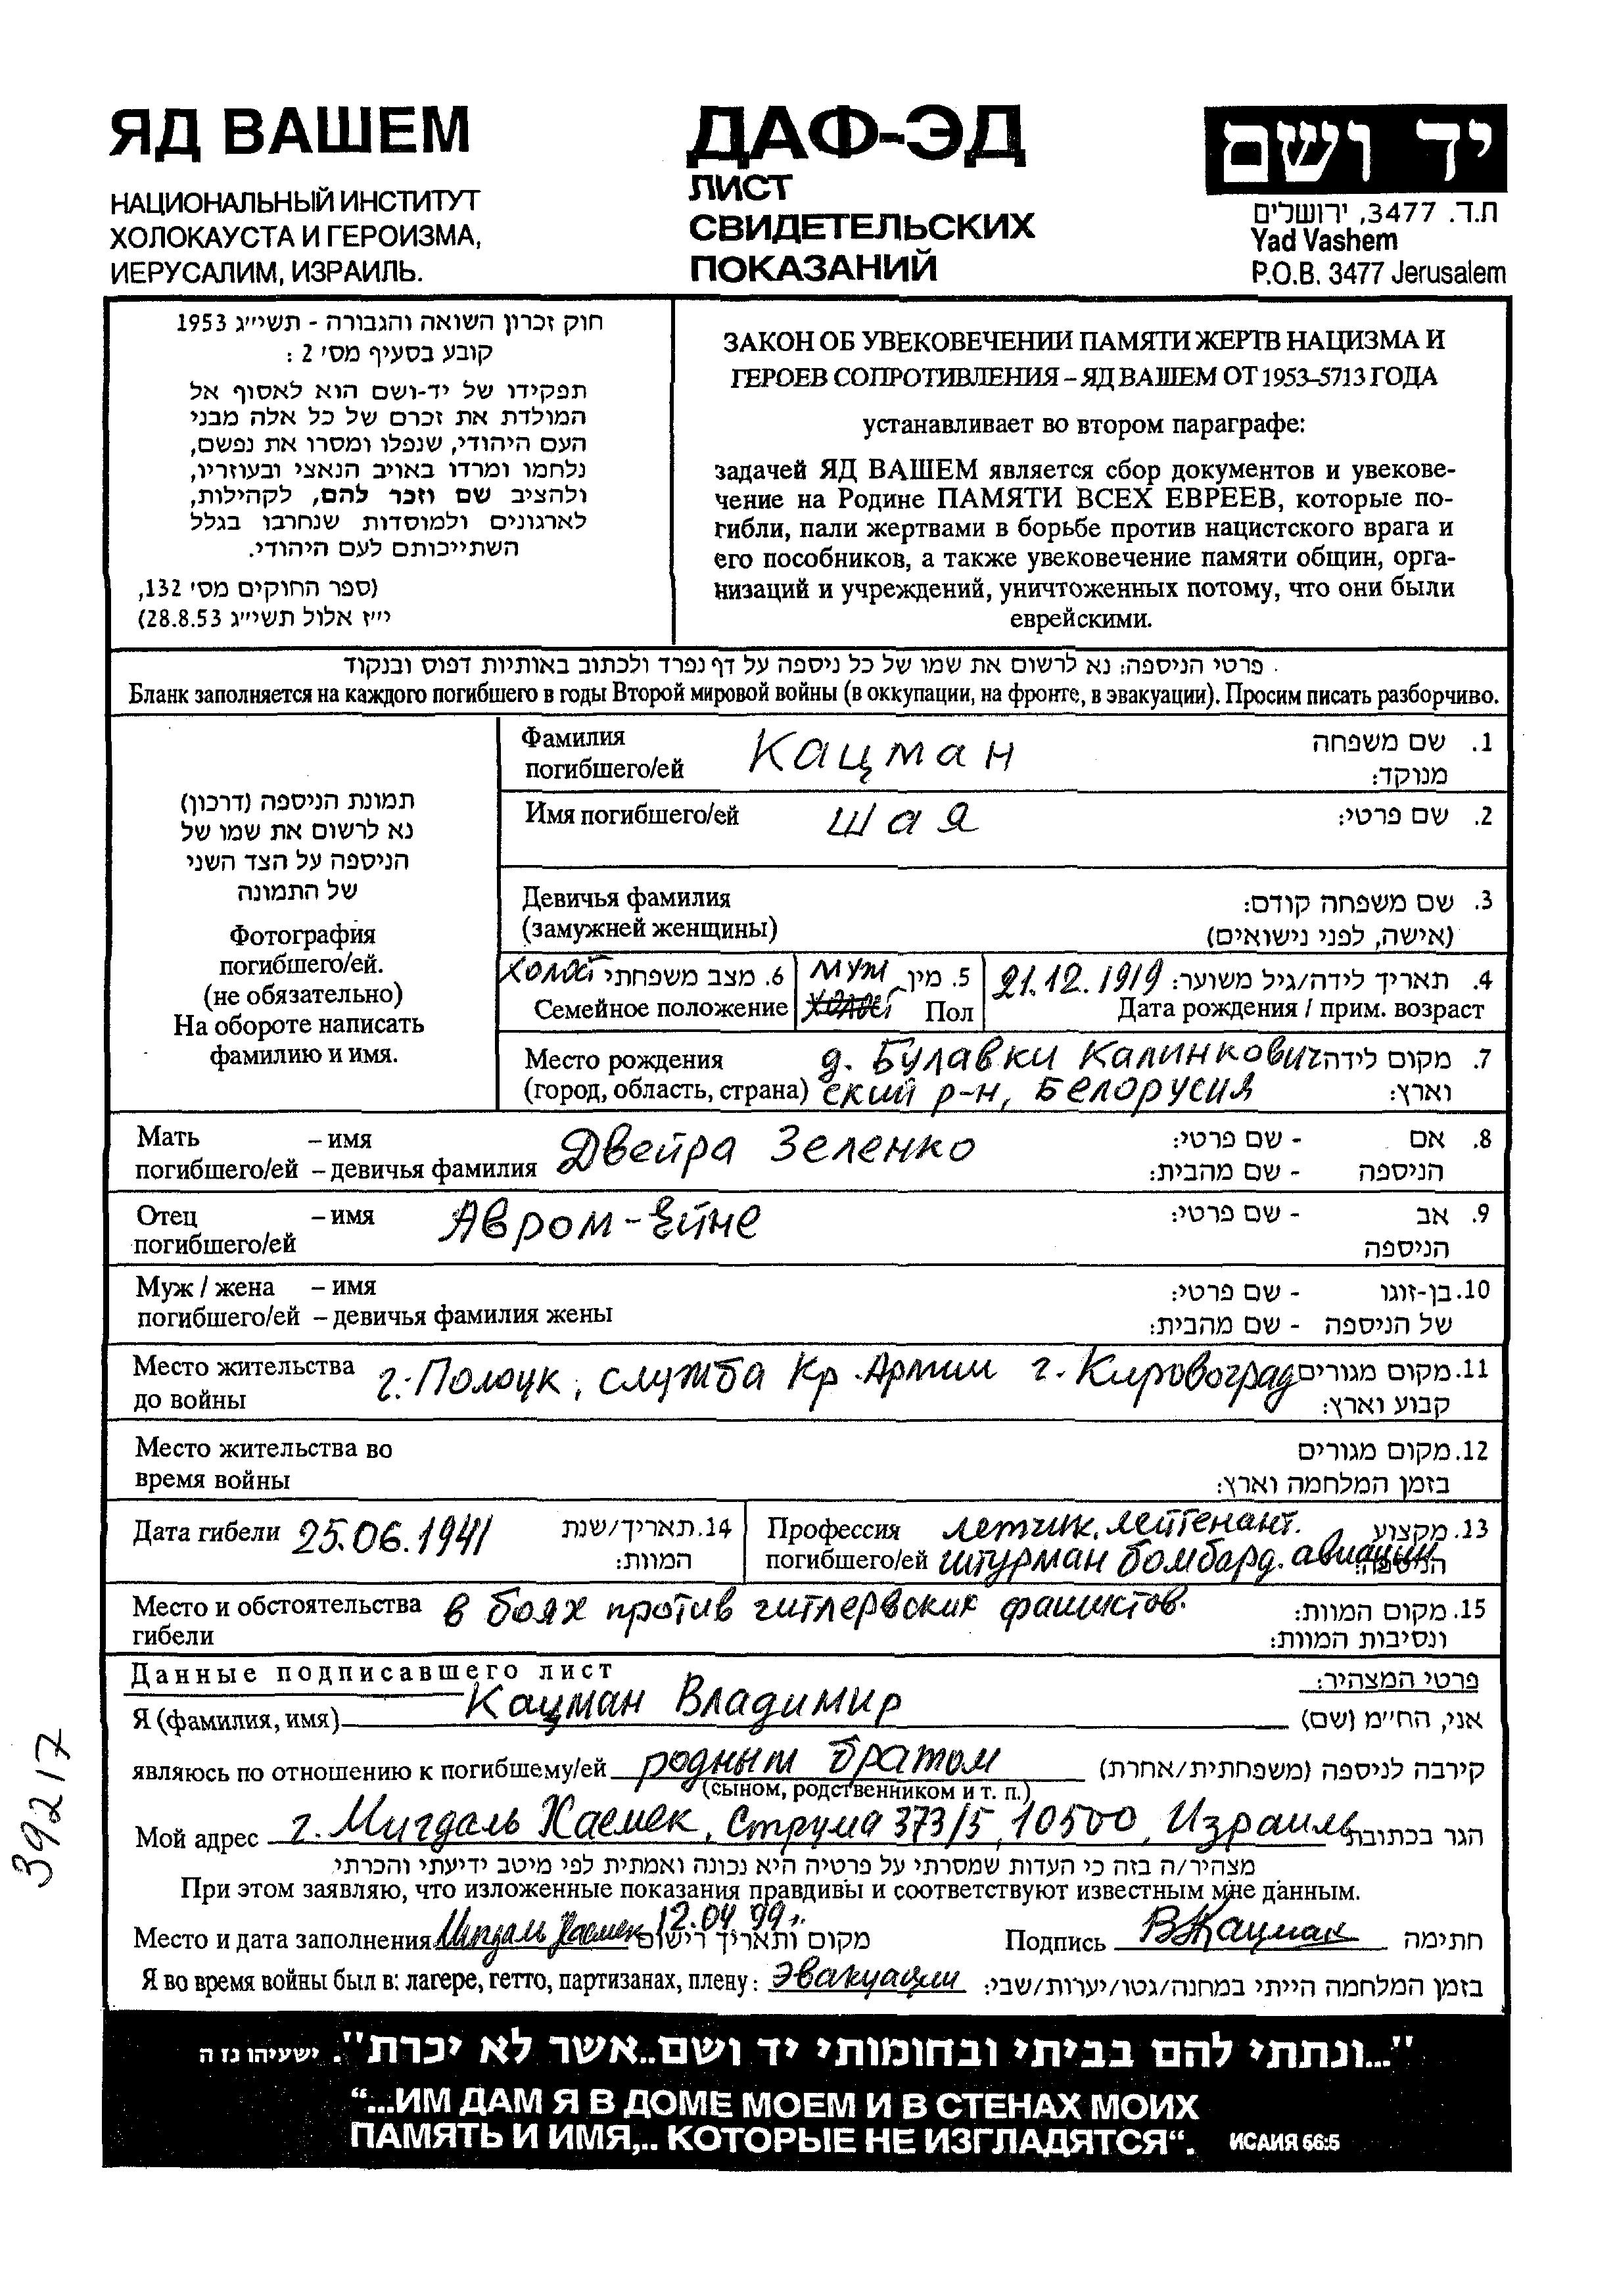 ЯД ВАШЕМ
НАЦИОНАЛЬНЫЙ ИНСТИТУТ
ХОЛОКАУСТА И ГЕРОИЗМА,
ИЕРУСАЛИМ, ИЗРАИЛЬ.
ДАФ-ЭД
ЛИСТ
СВИДЕТЕЛЬСКИХ
ПОКАЗАНИЙ
יד ושם
ת.ד. 3477, ירושלים
Yad Vashem
P.O.B. 3477 Jerusalem
חוק זכרון השואה והגבורה - תשי״ג 1953
קובע בסעיף מס׳ 2 :
תפקידו של יד-ושם הוא לאסוף אל
המולדת את זכרם של כל אלה מבני
העם היהודי, שנפלו ומסרו את נפשם,
נלחמו ומרדו באויב הנאצי ובעוזריו,
ולהציב שם וזכר להם, לקהילות,
לארגונים ולמוסדות שנחרבו בגלל
השתייכותם לעם היהודי.
(ספר החוקים מס׳ 132,
י״ז אלול תשי״ג 28.8.53)
ЗАКОН ОБ УВЕКОВЕЧЕНИИ ПАМЯТИ ЖЕРТВ НАЦИЗМА И
ГЕРОЕВ СОПРОТИВЛЕНИЯ – ЯД ВАШЕМ ОТ 1953-5713 ГОДА
устанавливает во втором параграфе:
задачей ЯД ВАШЕМ является сбор документов и увекове-
чение на Родине ПАМЯТИ ВСЕХ ЕВРЕЕВ, которые по-
гибли, пали жертвами в борьбе против нацистского врага и
его пособников, а также увековечение памяти общин, орга-
низаций и учреждений, уничтоженных потому, что они были
еврейскими.
פרטי הניספה: נא לרשום את שמו של כל ניספה על דף נפרד ולכתוב באותיות דפוס ובנקוד
Бланк заполняется на каждого погибшего в годы Второй мировой войны (в оккупации, на фронте, в эвакуации). Просим писать разборчиво.
תמונת הניספה (דרכון)
נא לרשום את שמו של
הניספה על הצד השני
של התמונה
Фотография
погибшего/ей.
(не обязательно)
На обороте написать
фамилию и имя.
Фамилия Кацман 1. שם משפחה
погибшего/ей מנוקד:
Имя погибшего/ей Шая 2. שם פרטי:
Девичья фамилия 3. שם משפחה קודם:
(замужней женщины) (אישה, לפני נישואים)
холост 6. מצב משפחתי муж 5. מין 21.12.1919 4. תאריך לידה/גיל משוער:
Семейное положение Пол Дата рождения / прим. возраст
Место рождения д. Булавки Калинкович 7. מקום לידה
(город, область, страна) ский р-н, Белорусия וארץ:
Мать – имя Двейра Зеленко 8. אם - שם פרטי:
погибшего/ей – девичья фамилия הניספה - שם מהבית:
Отец – имя Авром-Эйне 9. אב - שם פרטי:
погибшего/ей הניספה
Муж / жена – имя 10. בן-זוגו - שם פרטי:
погибшего/ей – девичья фамилия жены של הניספה - שם מהבית:
Место жительства г. Полоцк, служба Кр. Армии г. Кировоград 11. מקום מגורים
до войны קבוע וארץ:
Место жительства во 12. מקום מגורים
время войны בזמן המלחמה וארץ:
Дата гибели 25.06.1941 14. תאריך/שנת
המוות:
Профессия летчик, лейтенант. 13. מקצוע
погибшего/ей штурман бомбард. авиации הניספה:
Место и обстоятельства в боях против гитлервских фашистов. 15. מקום המוות:
гибели ונסיבות המוות:
Данные подписавшего лист פרטי המצהיר:
Я (фамилия, имя) Кацман Владимир אני, הח״מ (שם)
являюсь по отношению к погибшему/ей родным братом קירבה לניספה (משפחתית/אחרת)
(сыном, родственником и т. п.)
Мой адрес г. Мигдаль Хаемек, Струма 373/5, 10500, Израиль הגר בכתובת
מצהיר/ה בזה כי העדות שמסרתי על פרטיה היא נכונה ואמתית לפי מיטב ידיעתי והכרתי
При этом заявляю, что изложенные показания правдивы и соответствуют известным мне данным.
Место и дата заполнения Мигдаль Хаемек 12.04 99г. מקום ותאריך רישום Подпись ВКацман חתימה
Я во время войны был в: лагере, гетто, партизанах, плену: эвакуации בזמן המלחמה הייתי במחנה/גטו/יערות/שבי:
39217
"...ונתתי להם בביתי ובחומותי יד ושם..אשר לא יכרת". ישעיהו נז ה
“...ИМ ДАМ Я В ДОМЕ МОЕМ И В СТЕНАХ МОИХ
ПАМЯТЬ И ИМЯ,.. КОТОРЫЕ НЕ ИЗГЛАДЯТСЯ“. ИСАИЯ 56:5